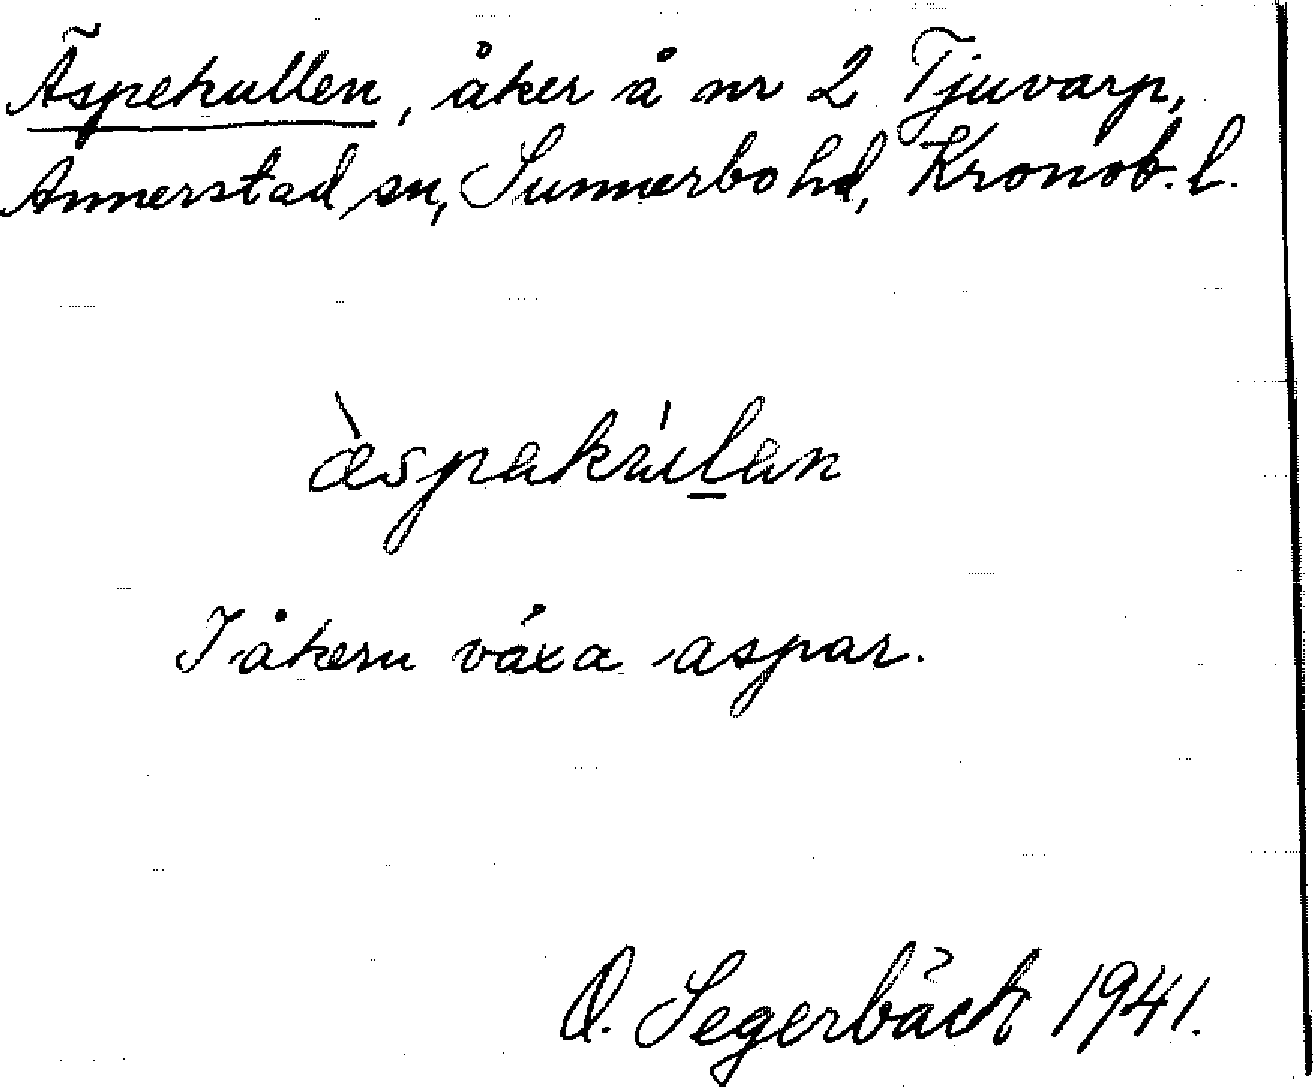 Äspekullen, åker å nr 2 Tjuvarp,
Annerstad sn, Sunnerbo hd, Kronob. l.
æ̀spakúl̠an
I åkern växa aspar.
O. Segerbäck 1941.